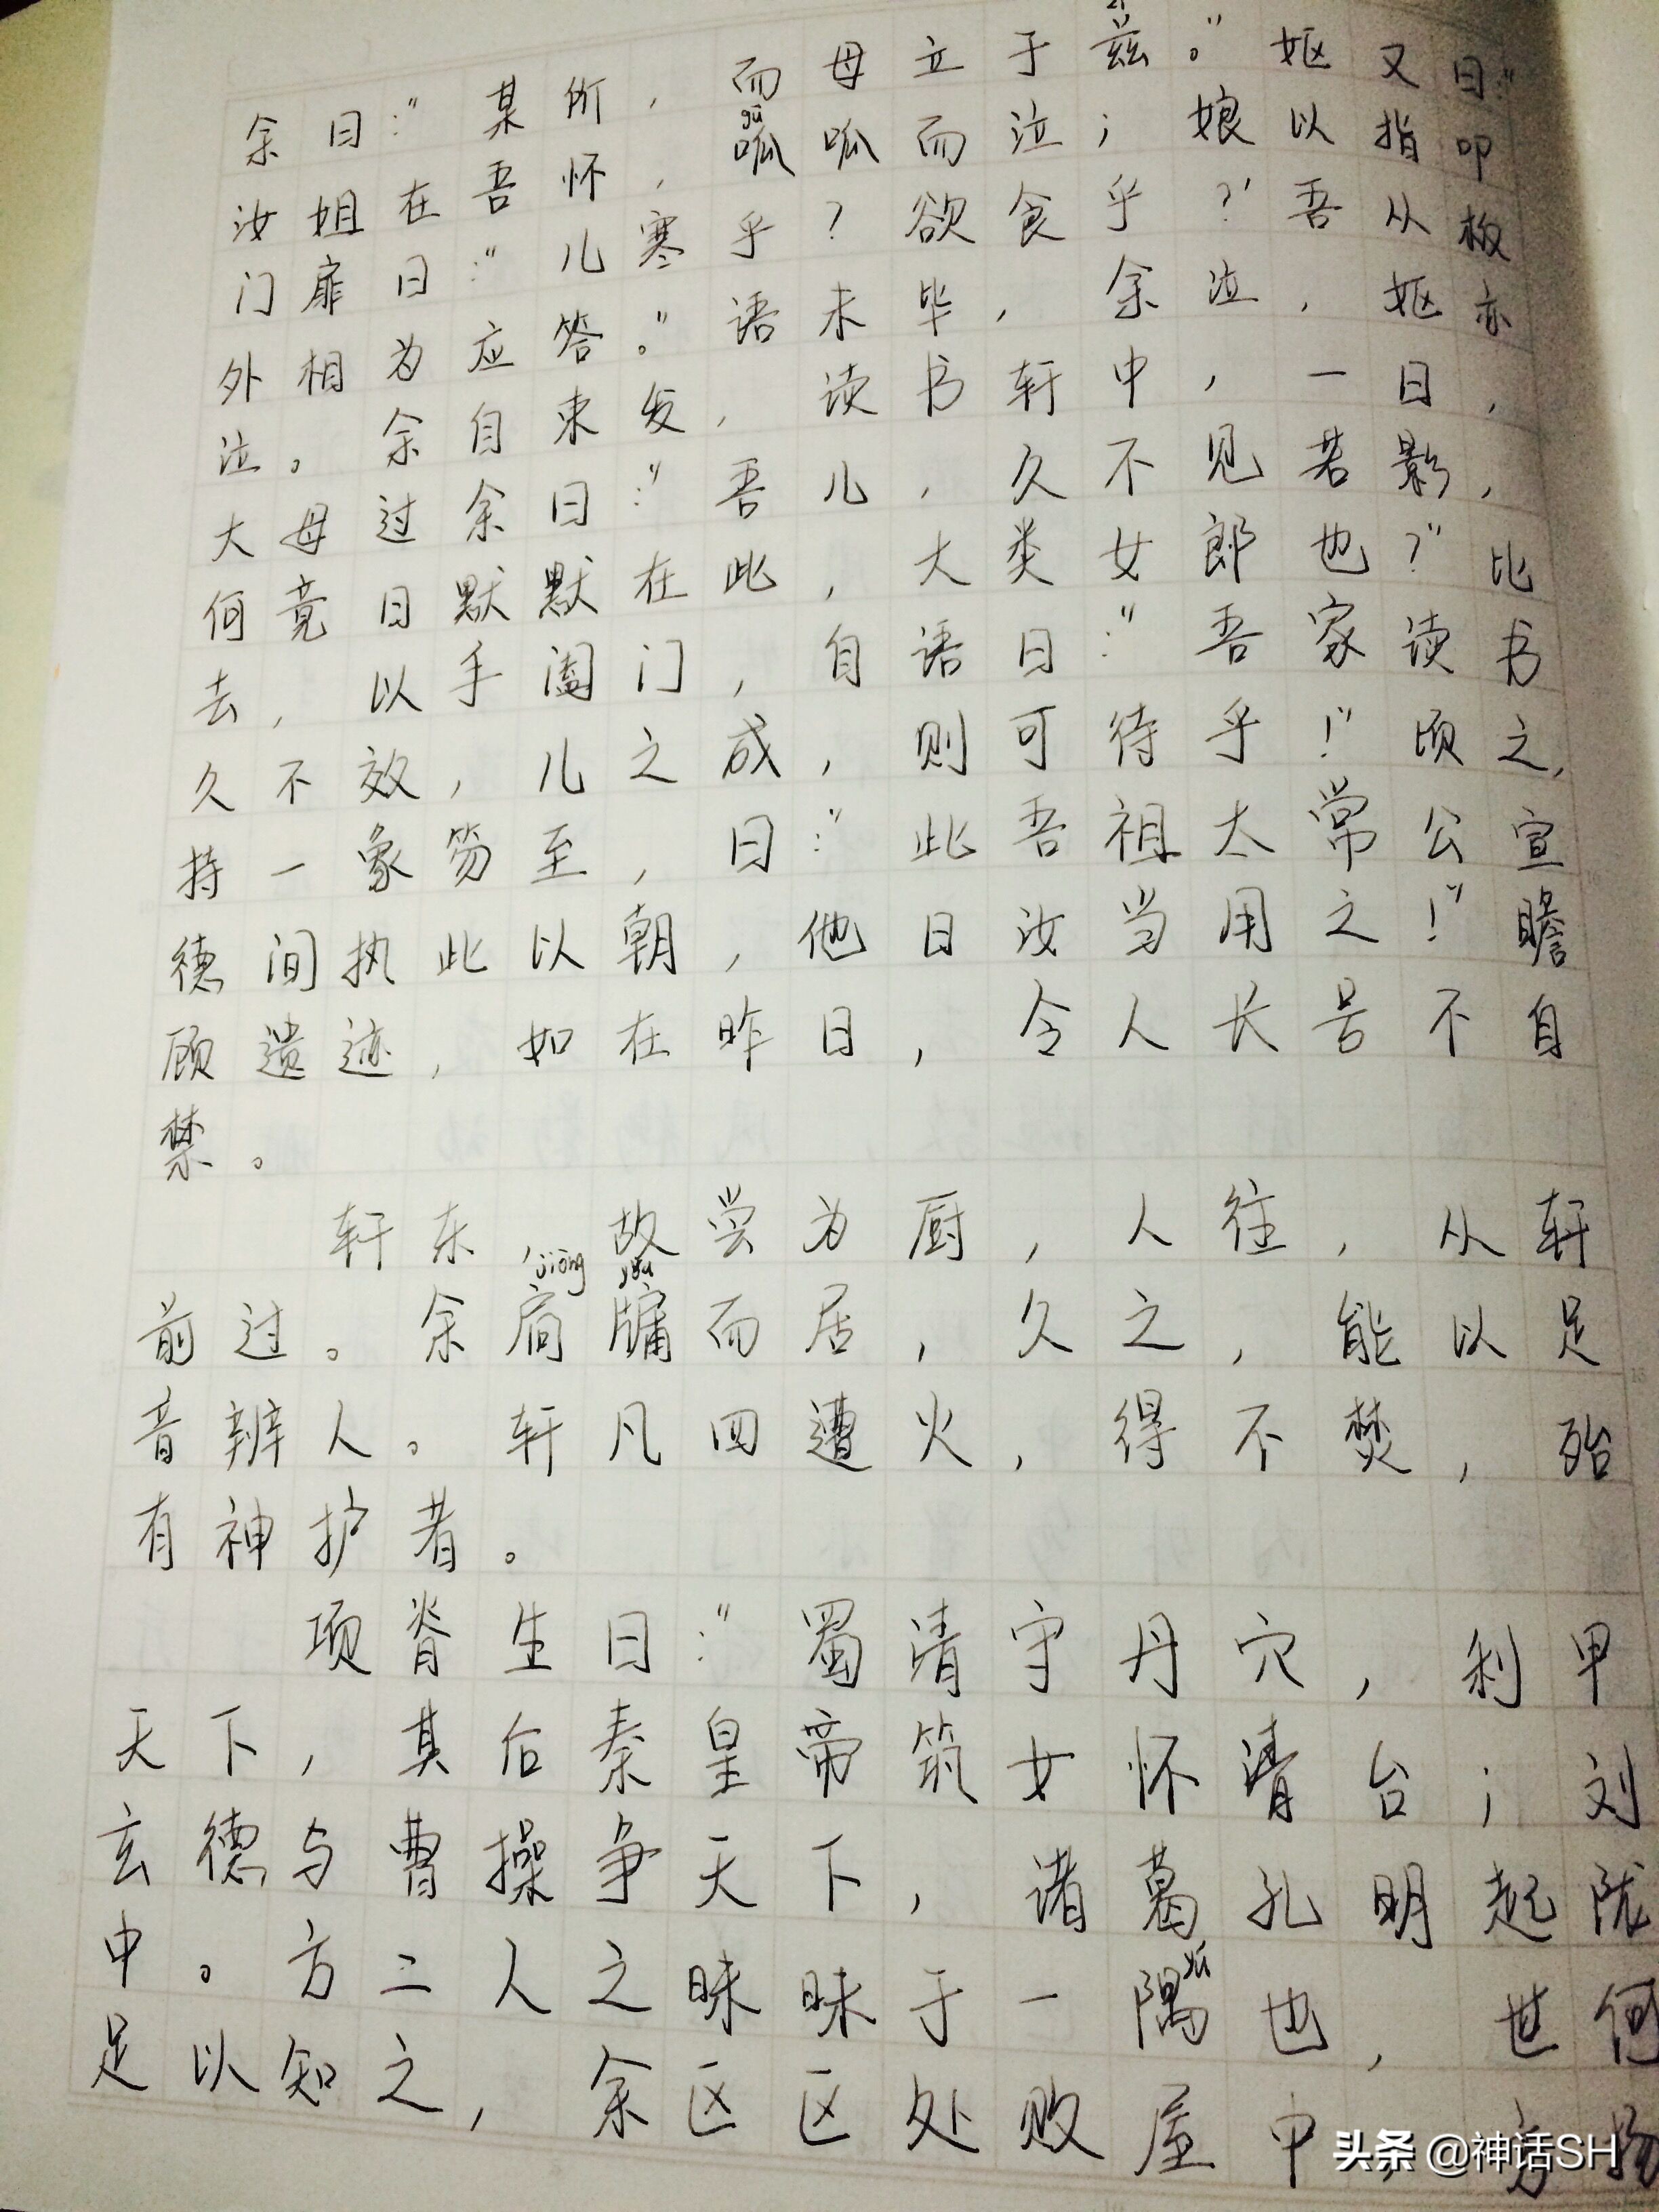 余曰:“某所,而母立于兹。”妪又曰:“
汝姐在吾怀,呱呱而泣;娘以指叩
门扉曰:“儿寒乎?欲食乎?’吾从板
外相为应答。”语未毕,余泣,妪亦
泣。余自束发,读书轩中,一日,
大母过余曰:“吾儿,久不见若影,
何竟日默默在此,大类女郎也?”比
去,以手阖门,自语曰:“吾家读书
久不效,儿之成,则可待乎!”顷之,
持一象笏至,曰:“此吾祖太常公宣
德间执此以朝,他日汝当用之!”瞻
顾遗迹,如在昨日,令人长号不自
禁。
轩东,故尝为厨,人往,从轩
jiōng yǒu
前过。余扃牖而居,久之,能以足
音辨人。轩凡四遭火,得不焚,殆
有神护者。
项脊生曰:“蜀清守丹穴,利甲
天下,其后秦皇帝筑女怀清台;刘
玄德与曹操争天下,诸葛孔明起陇
中。方二人之昧昧于一隅也,世何
足以知之,余区区处败屋中,方扬
头条 @神话SH